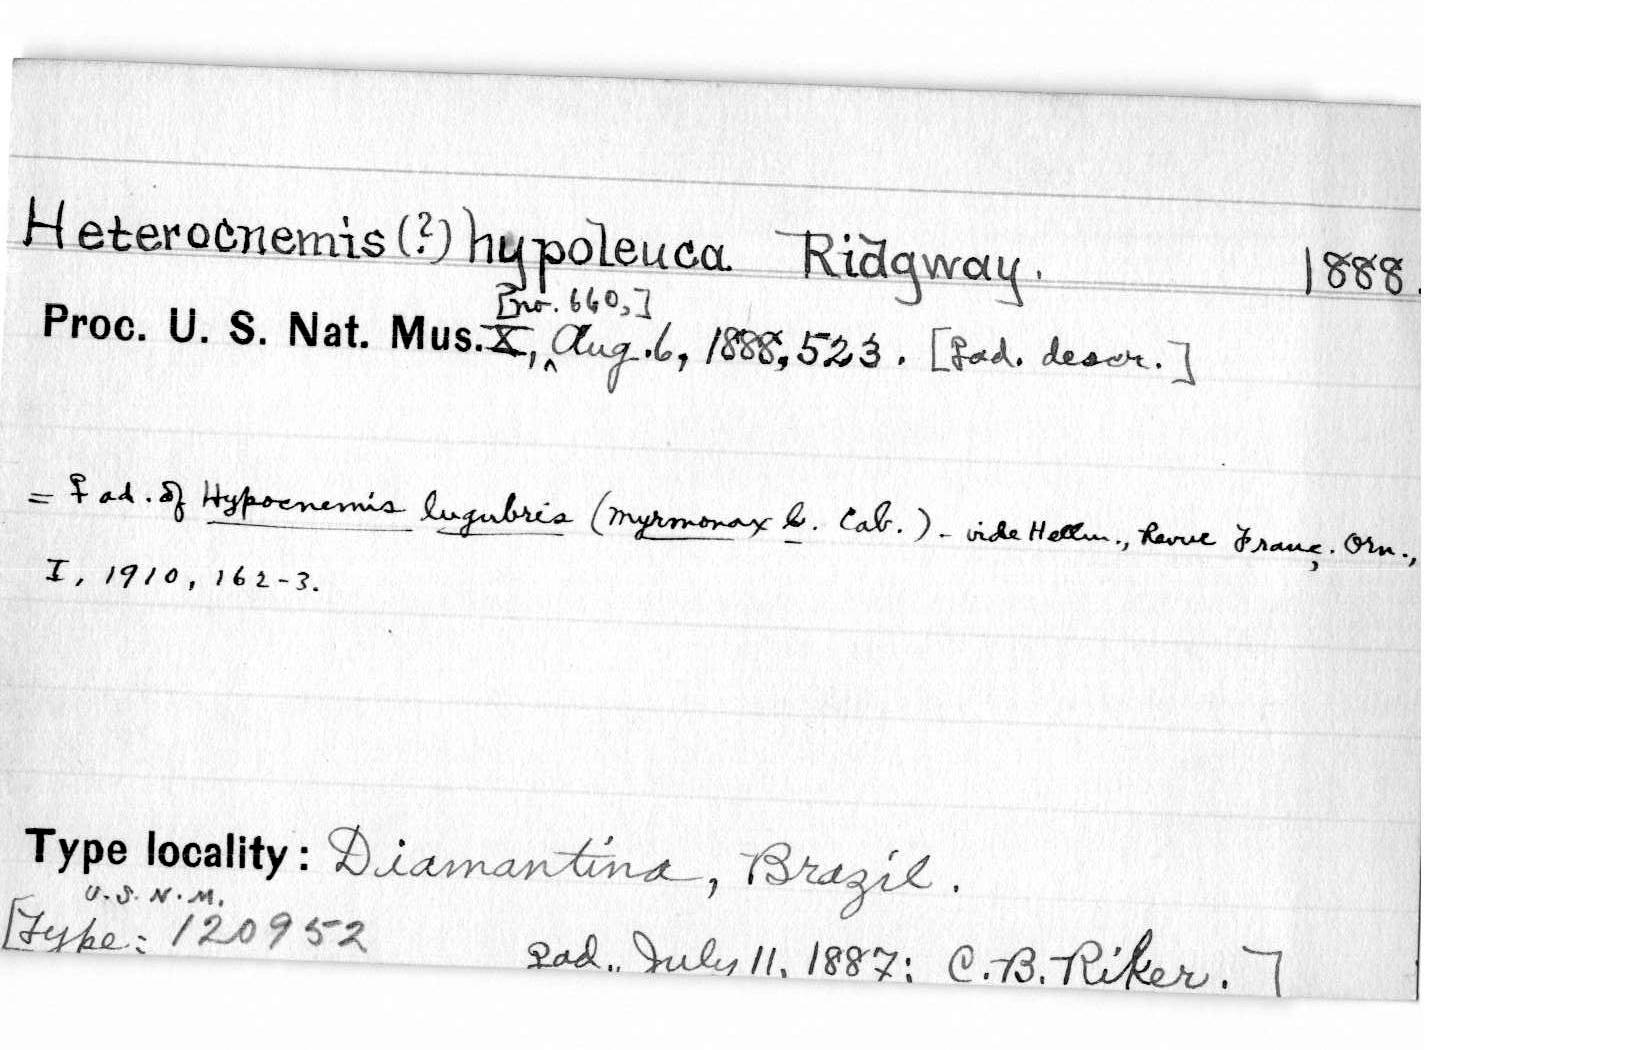 Heterocnemis (?) hypoleuca Ridgway. 1888.
[no. 660,]
Proc. U. S. Nat. Mus. X, ^ Aug. 6, 1888, 523. [♀ ad. descr.]
= ♀ ad. of Hypocnemis lugubris (Myrmonax l. Cab.) - vide Hellm., Revue Franç. Orn.,
I, 1910, 162-3.
Type locality: Diamantina, Brazil.
U.S.N.M.
[Type: 120952 ♀ ad., July 11, 1887; C.B. Riker.]